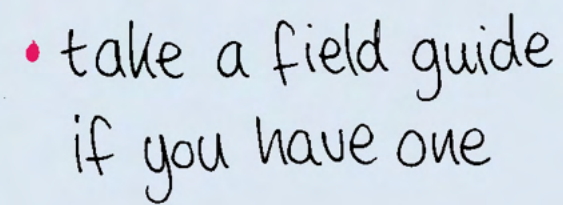 • take a field guide
if you have one